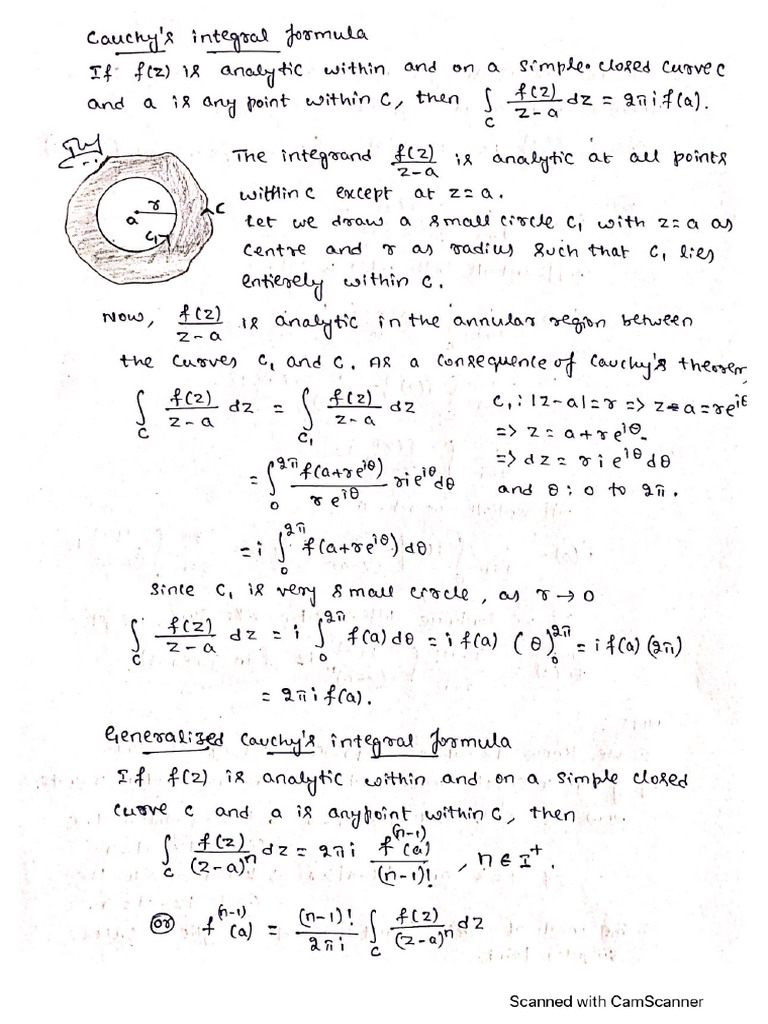 Cauchy's integral formula
If f(z) is analytic within and on a simple closed curve c
and a is any point within C, then ∫_C f(z)/(z-a) dz = 2πi f(a).
The integrand f(z)/(z-a) is analytic at all points
within c except at z=a.
Let we draw a small circle C₁ with z=a as
centre and r as radius such that C₁ lies
entierely within C.
a r C₁ C
Now, f(z)/(z-a) is analytic in the annular region between
the curves C₁ and C. As a consequence of Cauchy's theorem
∫_C f(z)/(z-a) dz = ∫_C₁ f(z)/(z-a) dz
C₁: |z-a|=r => z-a=re^{iθ}
=> z=a+re^{iθ}.
= ∫_0^{2π} f(a+re^{iθ})/(re^{iθ}) rie^{iθ}dθ
=> dz = rie^{iθ}dθ
and θ: 0 to 2π.
= i ∫_0^{2π} f(a+re^{iθ})dθ
Since C₁ is very small circle, as r→0
∫_C f(z)/(z-a) dz = i ∫_0^{2π} f(a)dθ = i f(a) (θ)_0^{2π} = i f(a)(2π)
= 2πi f(a).
Generalized Cauchy's integral formula
If f(z) is analytic within and on a simple closed
curve c and a is anypoint within C, then
∫_C f(z)/(z-a)^n dz = 2πi f^{(n-1)}(a)/(n-1)!, n∈I⁺.
or f^{(n-1)}(a) = (n-1)!/(2πi) ∫_C f(z)/(z-a)^n dz
Scanned with CamScanner